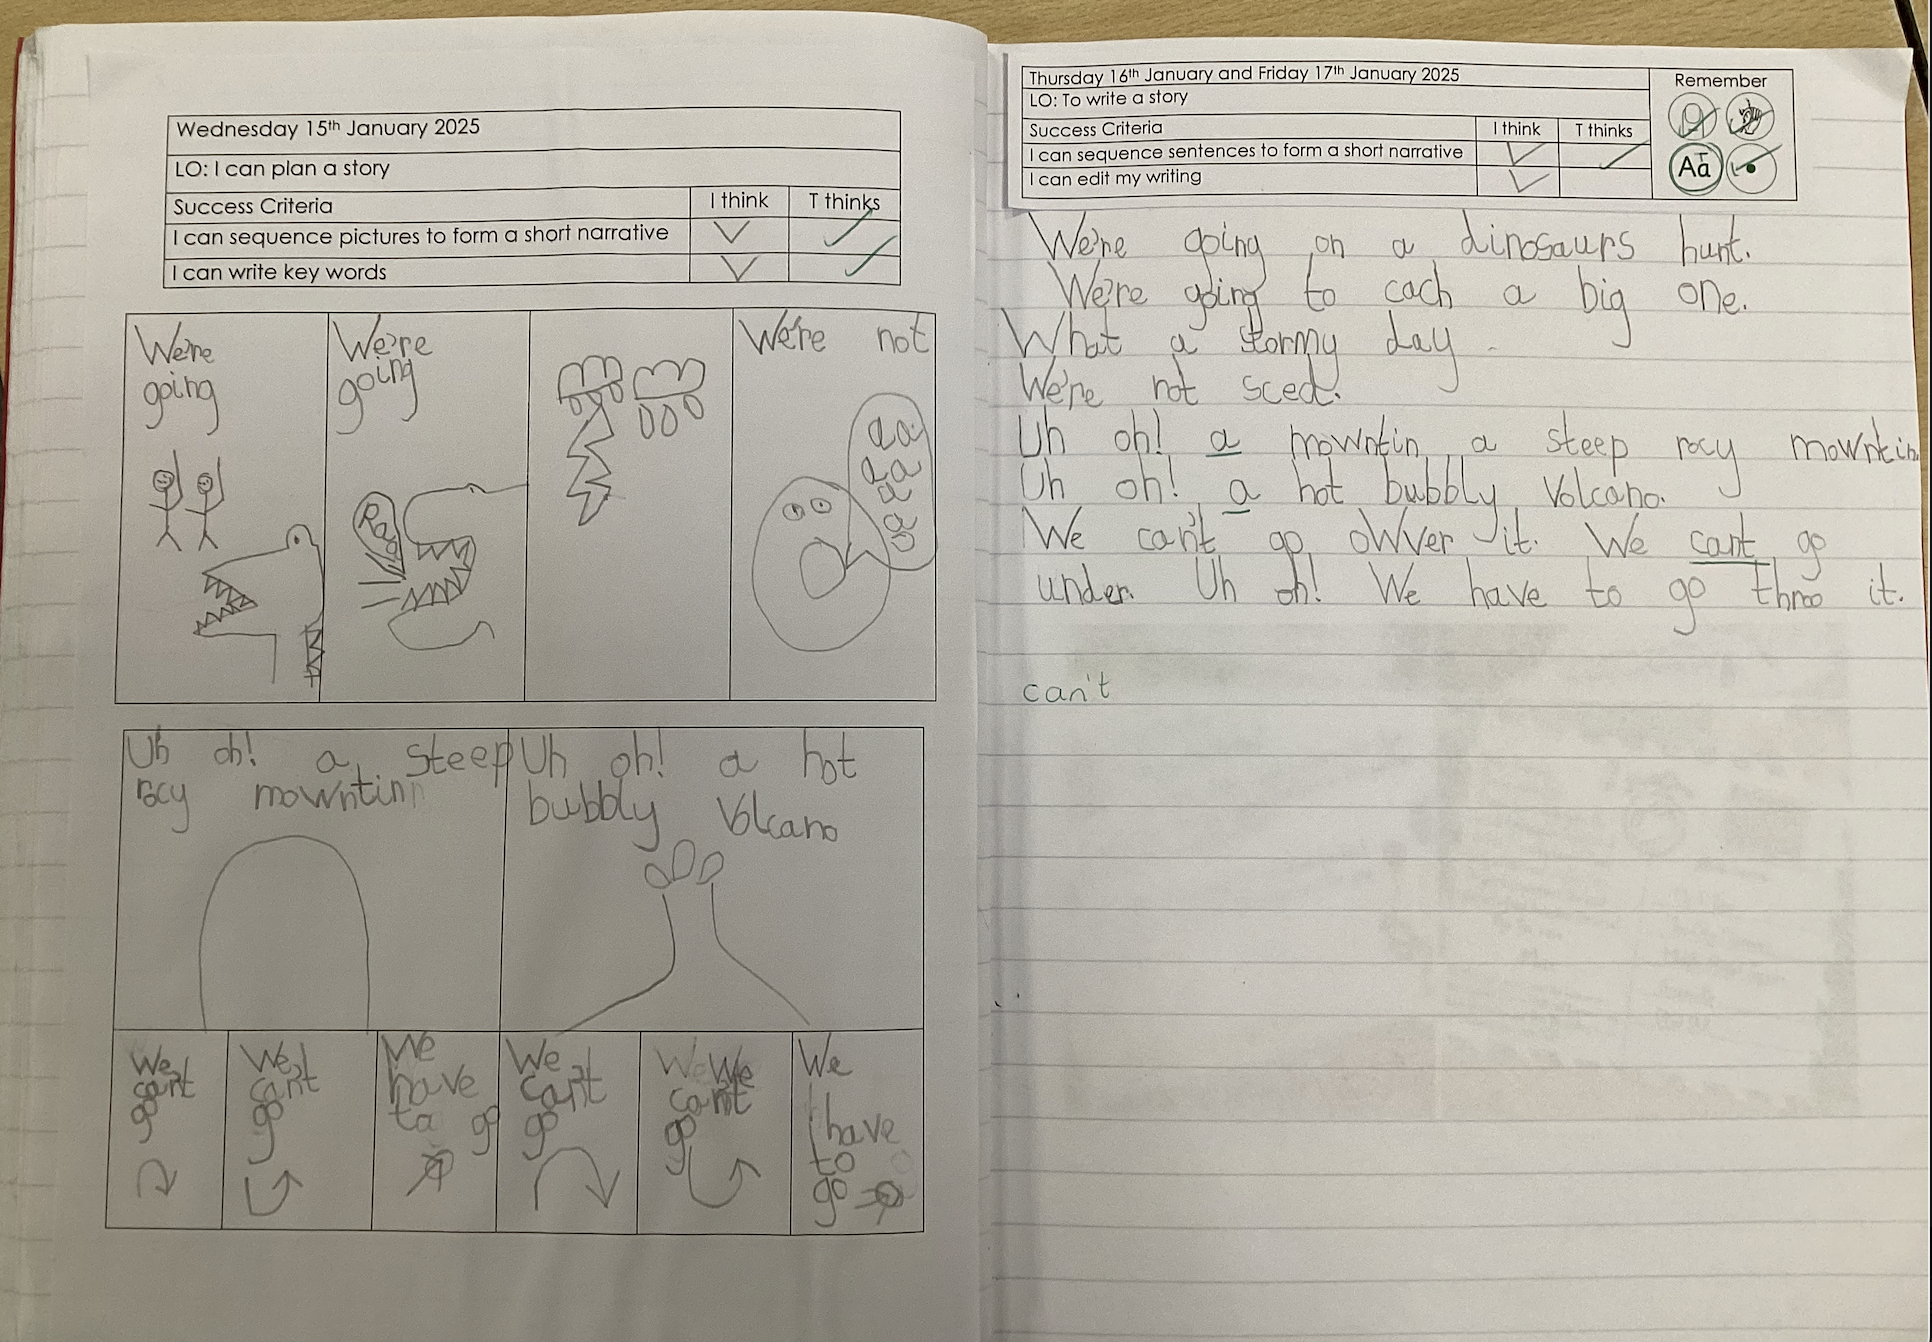 Wednesday 15th January 2025
LO: I can plan a story
Success Criteria I think T thinks
I can sequence pictures to form a short narrative
I can write key words
We're
going
We're
going
Roa
We're not
aa
aa
a
aa
Uh oh! a steep
rocy mowntin
Uh oh! a hot
bubbly Volcano
We
can't
go
We
can't
go
We
have
to go
We
can't
go
We
can't
go
We
have
to
go
Thursday 16th January and Friday 17th January 2025
LO: To write a story
Success Criteria I think T thinks
I can sequence sentences to form a short narrative
I can edit my writing
Remember
Aa
We're going on a dinosaurs hunt.
We're going to cach a big one.
What a stormy day.
We're not sced.
Uh oh! a mowntin, a steep rocy mowntin
Uh oh! a hot bubbly Volcano.
We can't go owver it. We cant go
under. Uh oh! We have to go throo it.
can't